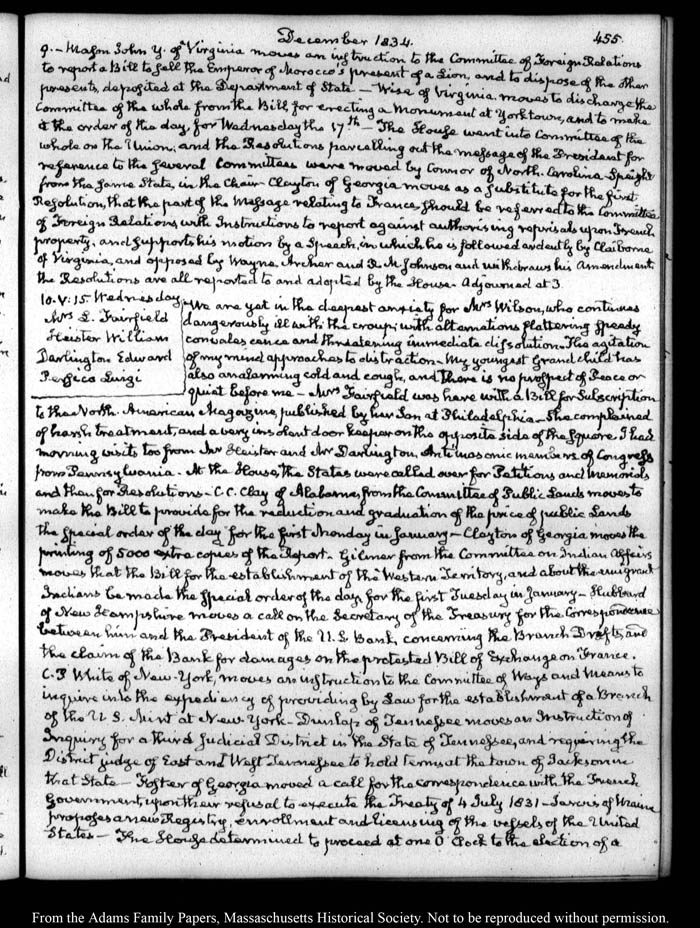 December 1834. 455.
9.- Mason John Y. of Virginia moves an instruction to the Committee of Foreign Relations
to report a Bill to sell the Emperor of Morocco's present of a Lion, and to dispose of the other
presents, deposited at the Department of State — Wise of Virginia moves to discharge the
Committee of the whole from the Bill for erecting a Monument at Yorktown, and to make
it the order of the day, for Wednesday the 17th — The House went into Committee of the
whole on the Union, and the Resolutions parcelling out the message of the President for
reference to the several Committees were moved by Connor of North-Carolina Speight
from the same State, in the Chair - Clayton of Georgia moves as a substitute for the first
Resolution, that the part of the Message relating to France, should be referred to the Committee
of Foreign Relations, with Instructions to report against authorising reprisals upon French
property, and supports his motion by a Speech, in which he is followed ardently by Claiborne
of Virginia, and opposed by Wayne, Archer and R. M. Johnson and withdraws his Amendment,
the Resolutions are all reported to and adopted by the House - Adjourned at 3
10. V:15. Wednesday
Mrs L. Fairfield
Heister William
Darlington Edward
Persico Luigi
We are yet in the deepest anxiety for Mrs Wilson, who continues
dangerously ill with the croup; with alternations flattering speedy
convalescence and threatening immediate dissolution - The agitation
of my mind approaches to distraction - My youngest Grandchild has
also an alarming cold and cough, and there is no prospect of Peace or
Quiet before me - Mrs Fairfield was here with a Bill for Subscription
to the North-American Magazine, published by her Son at Philadelphia - She complained
of harsh treatment, and a very insolent door keeper on the opposite side of the square. I had
morning visits too from Mr Heister and Mr Darlington, Antimasonic members of Congress
from Pennsylvania - At the House, the States were called over for Petitions and Memorials
and then for Resolutions - C. C. Clay of Alabama, from the Committee of Public Lands moves to
make the Bill to provide for the reduction and graduation of the price of public Lands
the special order of the day for the first Monday in January - Clayton of Georgia moves the
printing of 5000 extra copies of the Report. Gilmer from the Committee on Indian Affairs
moves that the Bill for the establishment of the Western Territory, and about the emigrant
Indians be made the special order of the day for the first Tuesday in January - Hubbard
of New Hampshire moves a call on the Secretary of the Treasury for the Correspondence
between him and the President of the U.S. Bank, concerning the Branch Drafts, and
the claim of the Bank for damages on the protested Bill of Exchange on France.
C. P White of New-York, moves an instruction to the Committee of Ways and Means to
inquire into the expediency of providing by Law for the establishment of a Branch
of the U S. Mint at New-York - Dunlap of Tennessee moves an Instruction of
Inquiry for a third Judicial District in the State of Tennessee, and requiring the
District judge of East and West Tennessee to hold terms at the town of Jackson in
that State - Foster of Georgia moved a call for the correspondence with the French
Government, upon their refusal to execute the Treaty of 4 July 1831 - Jarvis of Maine
proposes a new Registry, enrollment and licensing of the vessels of the United
States - The House determined to proceed at one O'Clock to the election of a
From the Adams Family Papers, Massachusetts Historical Society. Not to be reproduced without permission.